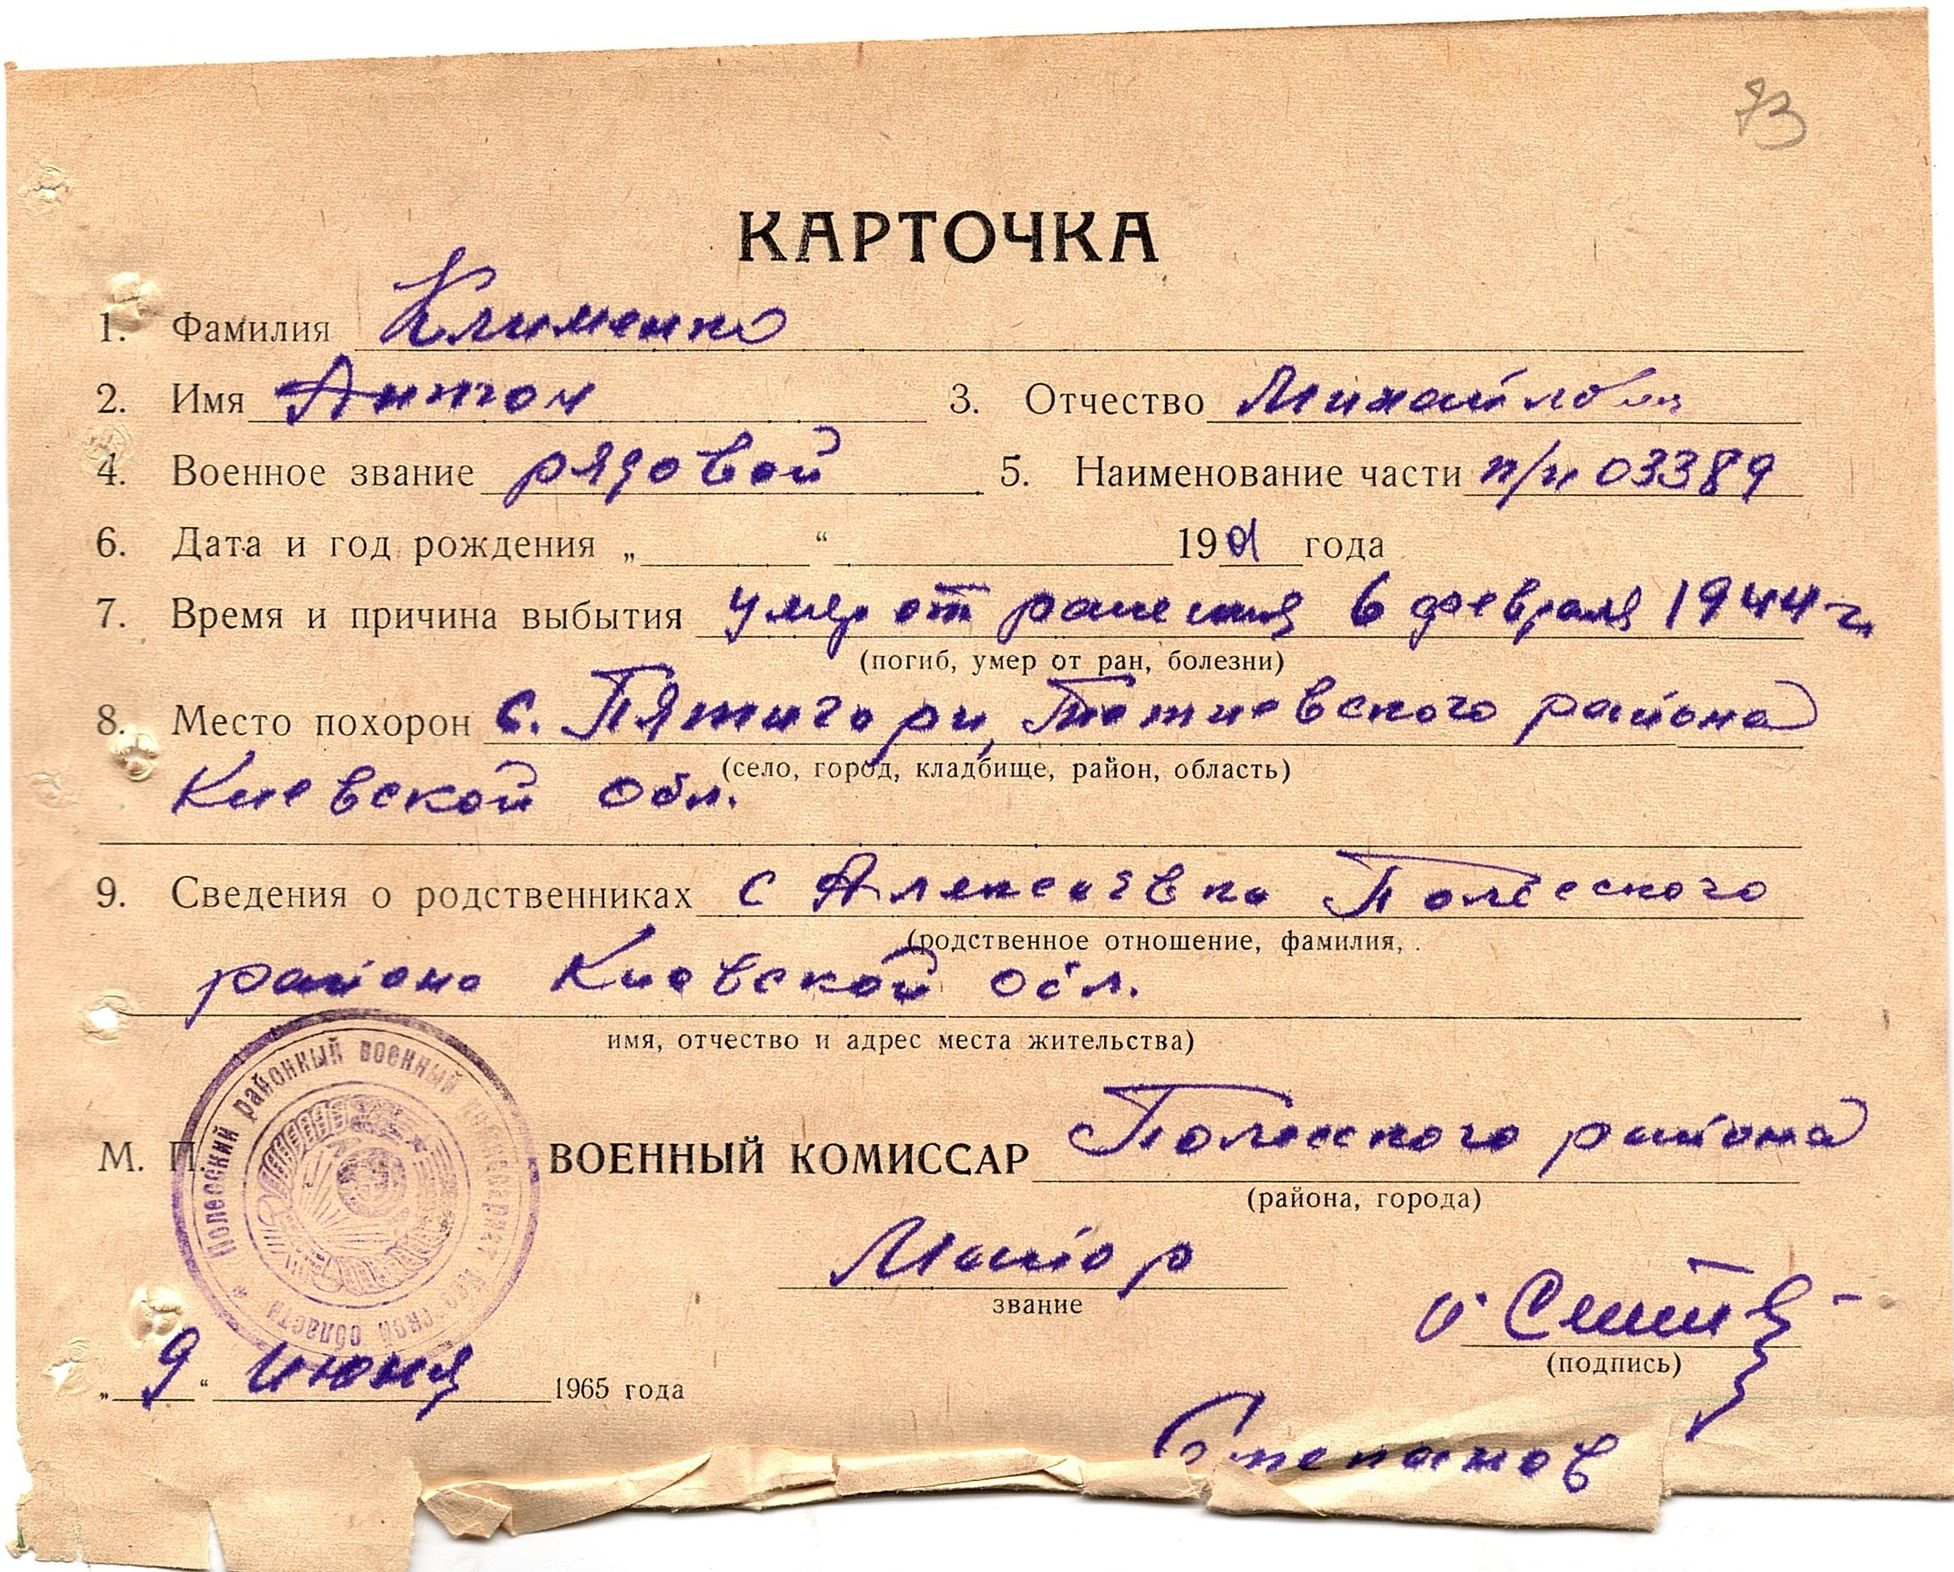 73
КАРТОЧКА
1. Фамилия Клименко
2. Имя Антон 3. Отчество Михайлович
4. Военное звание рядовой 5. Наименование части п/п 03389
6. Дата и год рождения „ “ 19 года
7. Время и причина выбытия умер от ранения 6 февраля 1944 г.
(погиб, умер от ран, болезни)
8. Место похорон с. Пятигори, Тетиевского района
(село, город, кладбище, район, область)
Киевской обл.
9. Сведения о родственниках с Алексеевка Полесского
(родственное отношение, фамилия,
района Киевской обл.
имя, отчество и адрес места жительства)
Полесский районный военный комиссариат Киевской области *
М. П. ВОЕННЫЙ КОМИССАР Полесского района
(района, города)
Майор
звание
(подпись)
„ 9 “ июня 1965 года
Степанов